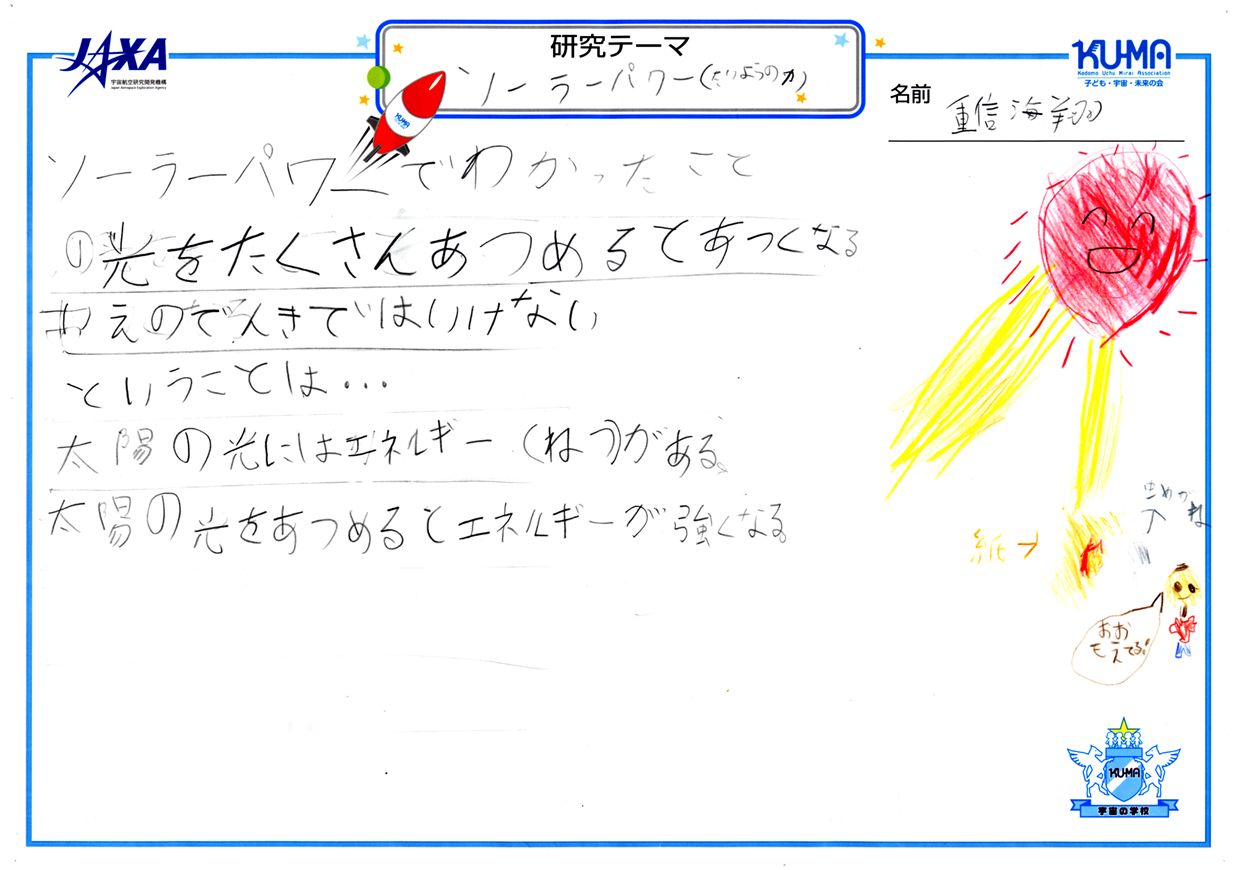 JAXA
宇宙航空研究開発機構
Japan Aerospace Exploration Agency
研究テーマ
ソーラーパワー(たいようの力)
KUMA
KUMA
Kodomo Uchu Mirai Association
子ども・宇宙・未来の会
名前
重信海翔
ソーラーパワーでわかったこと
①光をたくさんあつめるとあつくなる
いえのでんきではいけない
ということは…
太陽の光にはエネルギー(ねつ)がある。
太陽の光をあつめるとエネルギーが強くなる。
虫めがね
紙→
おお
もえてる!
KUMA
宇宙の学校